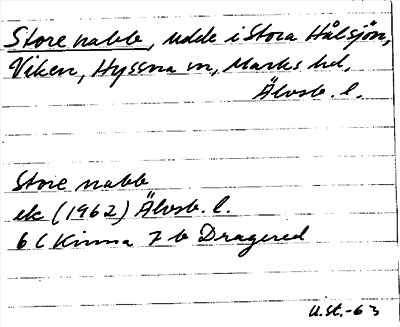 Store nabb, udde i Stora Hålsjön,
Viken, Hyssna sn, Marks hd,
Älvsb. l.
Store nabb
ek (1962) Älvsb. l.
6 C Kinna 7 b Dragered
U.St.-63